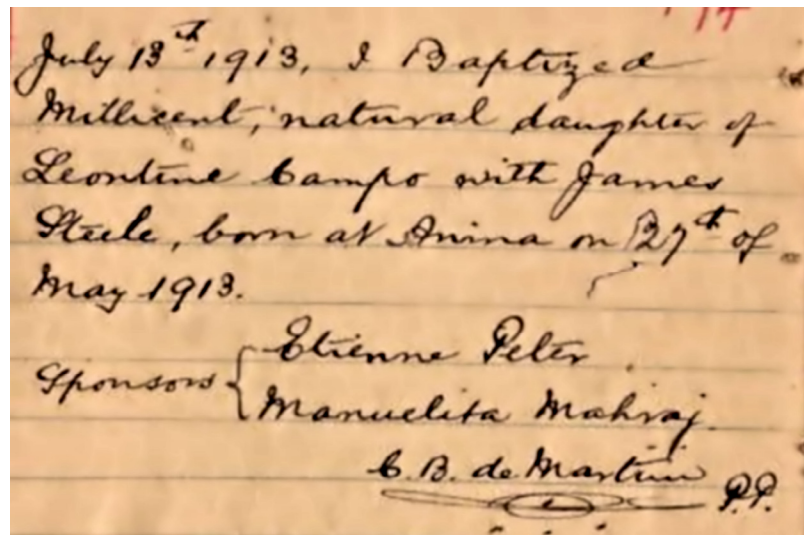 July 13th 1913, I Baptized
Millicent, natural daughter of
Leontine Campo with James
Steele, born at Arima on 27th of
May 1913.
Etienne Peter
Sponsors {
Manuelita Mahraj.
C. B. de Martini
P.P.